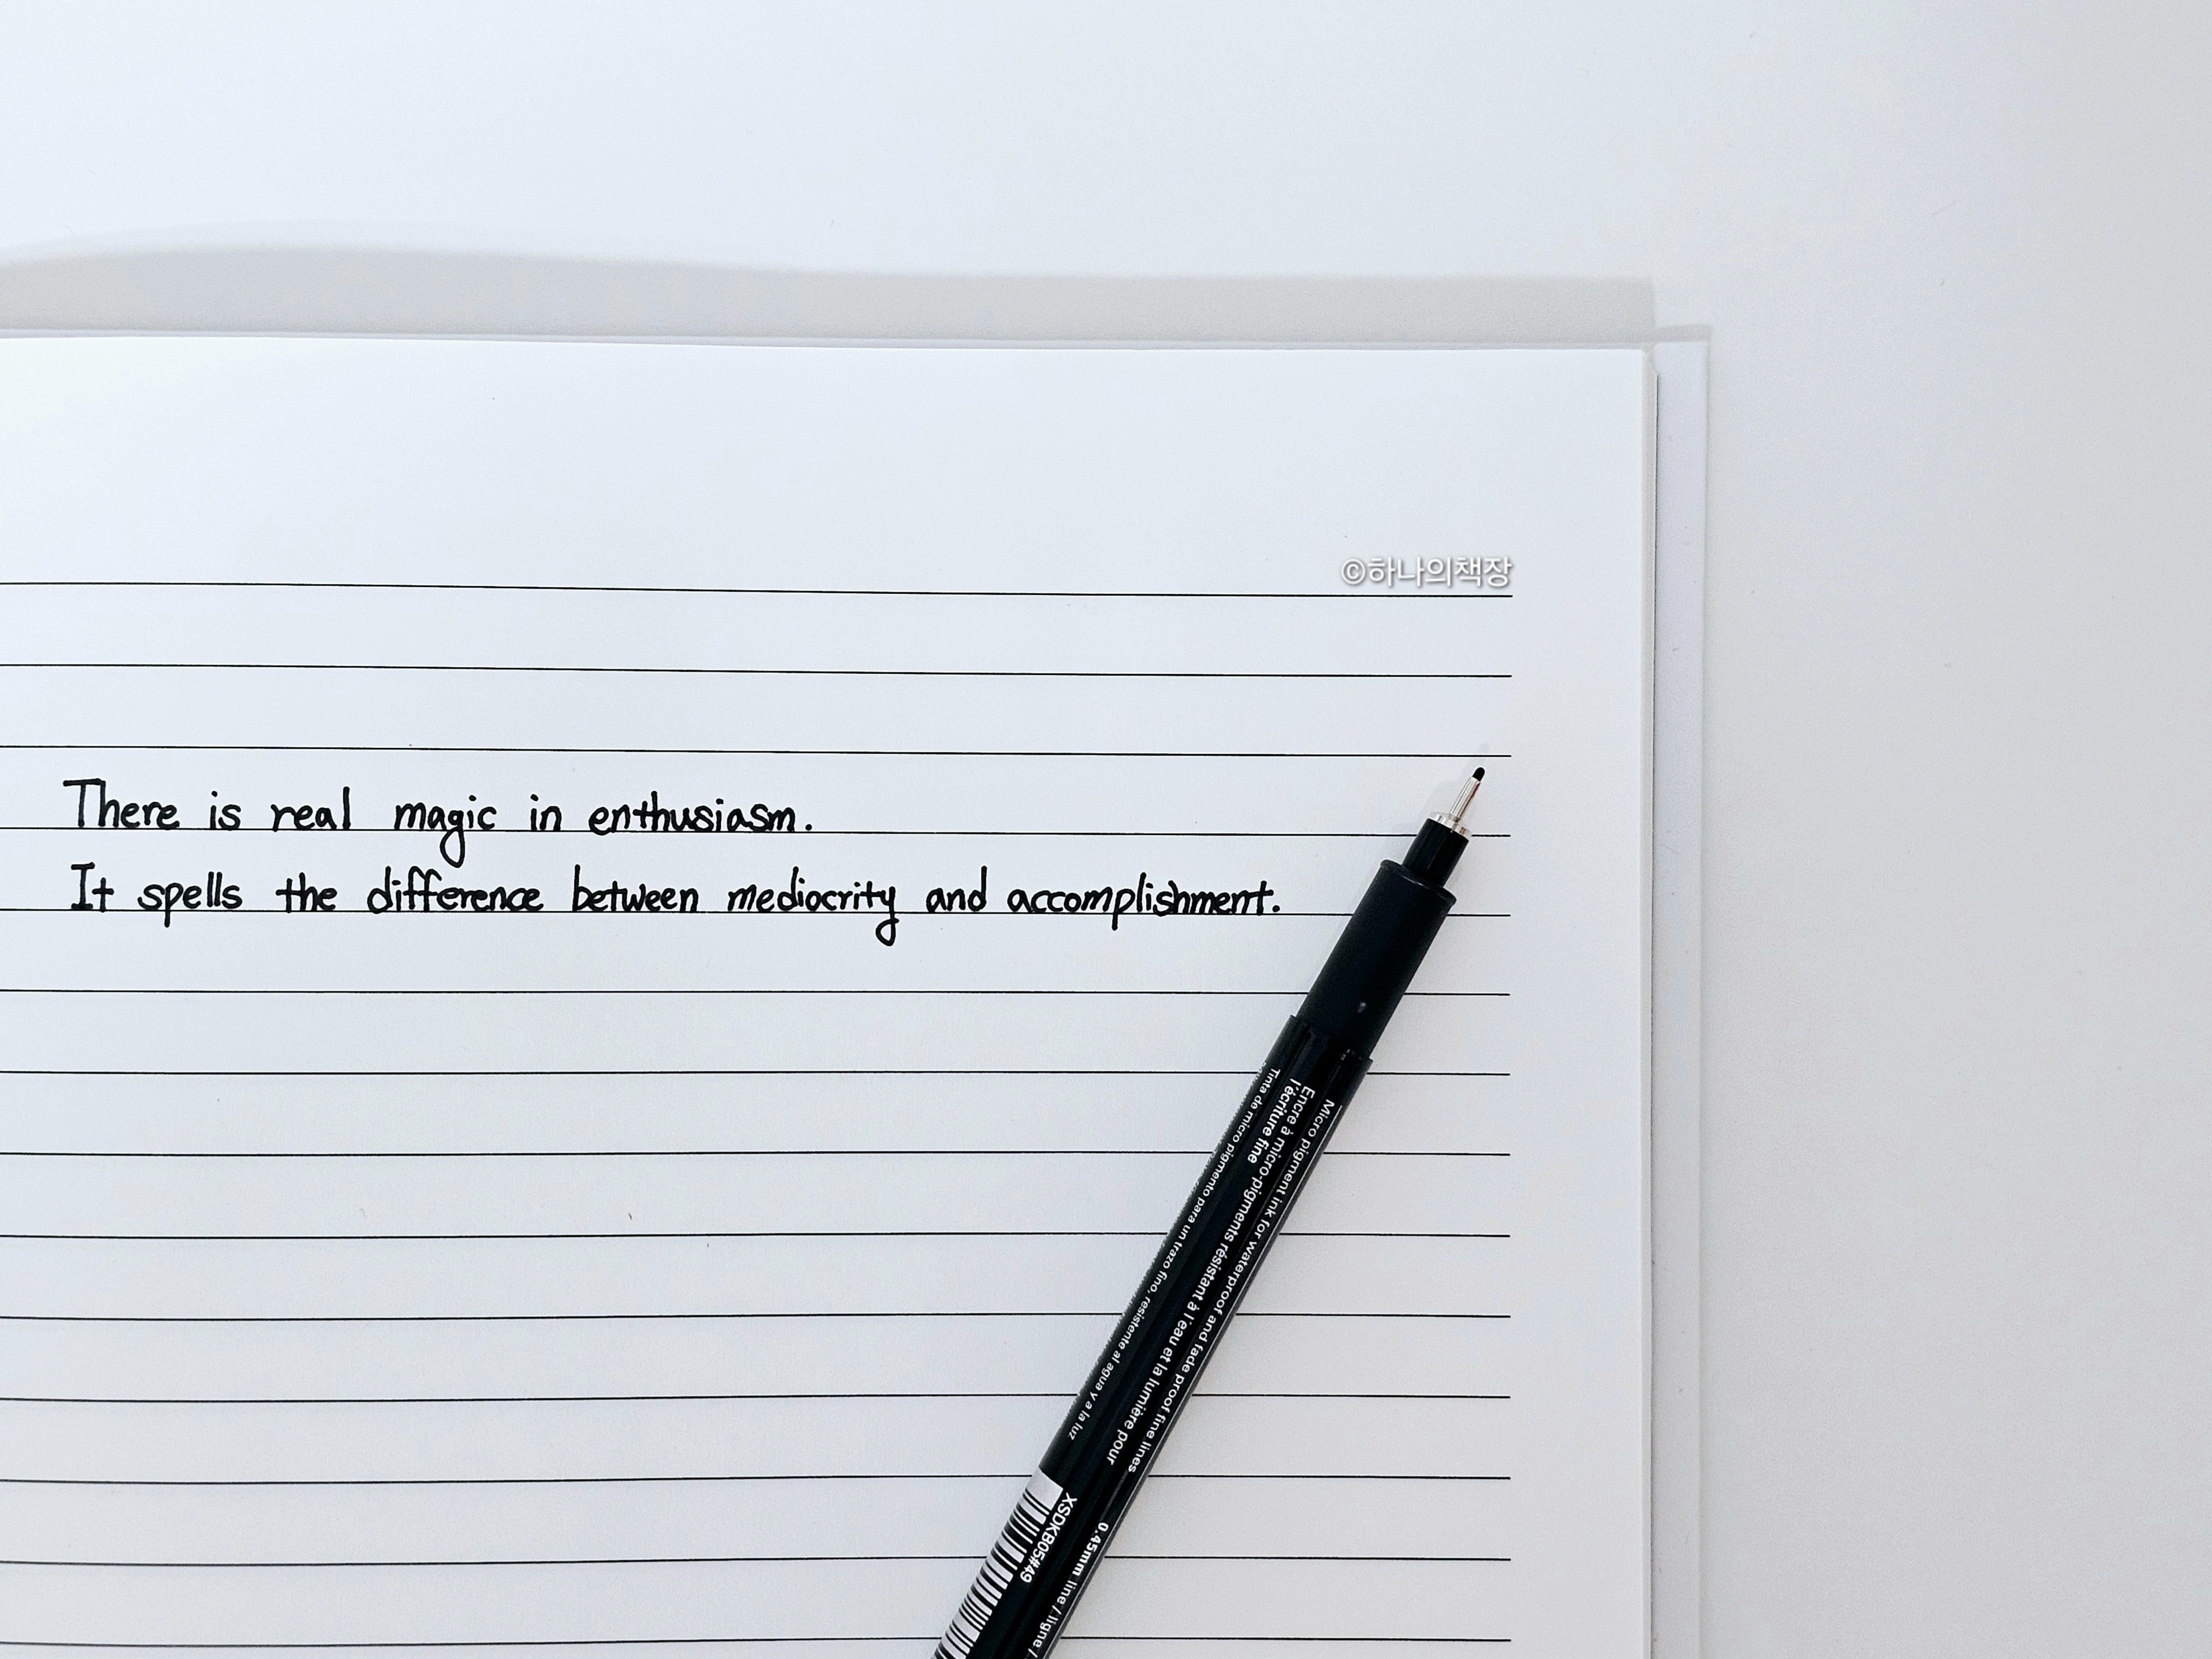 ©하나의책장
There is real magic in enthusiasm.
It spells the difference between mediocrity and accomplishment.
Micro pigment ink for waterproof and fade proof fine lines
Encre à micro-pigments résistant à l'eau et la lumière pour
l'écriture fine
Tinta de micro pigmento para un trazo fino, resistente al agua y a la luz
XSDKB05#49
0.45mm line / ligne /